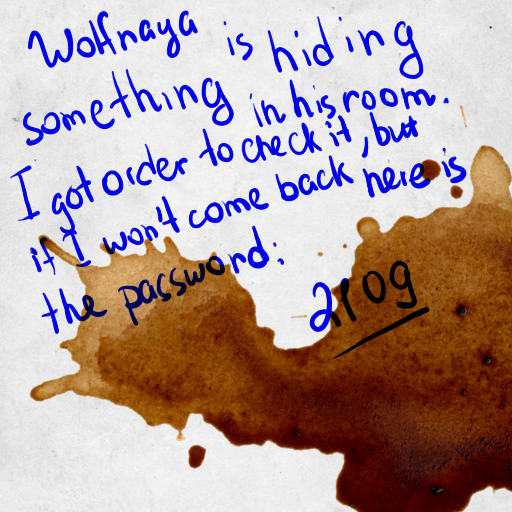 Wolfnaya is hiding
something in his room.
I got order to check it, but
if I won't come back here is
the password:
2109